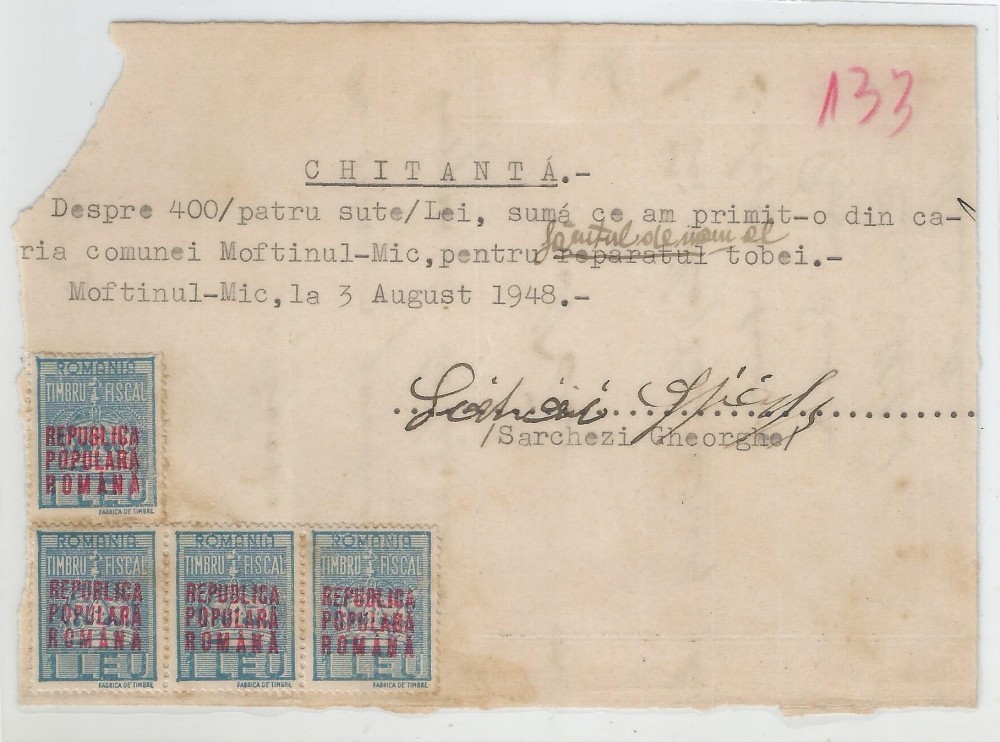 133
CHITANTÁ.-
Despre 400/patru sute/Lei, sumá ce am primit-o din ca-
ria comunei Moftinul-Mic, pentru reparatul tobei.-
Moftinul-Mic, la 3 August 1948.-
/Sarchezi Gheorghe/
ROMANIA
TIMBRU FISCAL
REPUBLICA
POPULARĂ
ROMÂNĂ
1 LEU
FABRICA DE TIMBRE
ROMANIA
TIMBRU FISCAL
REPUBLICA
POPULARĂ
ROMÂNĂ
1 LEU
FABRICA DE TIMBRE
ROMANIA
TIMBRU FISCAL
REPUBLICA
POPULARĂ
ROMÂNĂ
1 LEU
FABRICA DE TIMBRE
ROMANIA
TIMBRU FISCAL
REPUBLICA
POPULARĂ
ROMÂNĂ
1 LEU
FABRICA DE TIMBRE